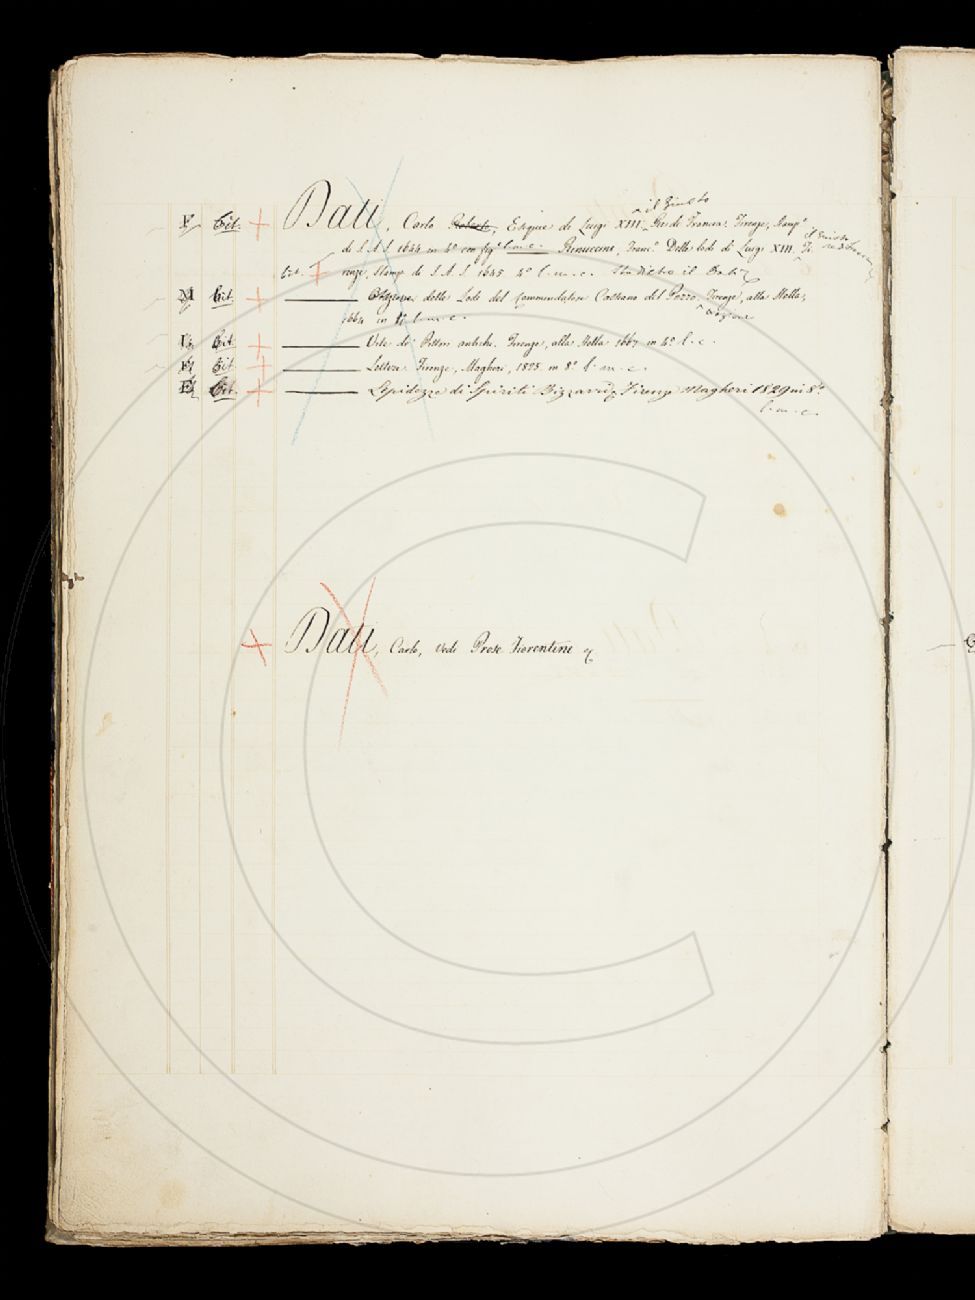 il Giusto
F Cit. Dati, Carlo Roberto, Esequie di Luigi XIII, Re di Francia. Firenze, Stamp.ª
di S. A. S. 1644 in 4º con fig.e l. m. c. Rinuccini, Franc.º Delle lodi di Luigi XIII. Fi-
il Giusto
Cit. renze, Stamp. di S. A. S. 1645. 4º l. m. c.
M Cit. Orazione delle Lodi del Commendatore Cassiano del Pozzo. Firenze, alla Stella,
1664 in 4º l. m. c. Orazione
Cit. Vite de' Pittori antichi. Firenze, alla Stella 1667 in 4º l. c.
Cit. Lettere. Firenze, Magheri, 1825. in 8º l. m. c.
Cit. Lepidezze di Spiriti Bizzarri, Firenze Magheri 1829 in 8º
l. m. c.
Dati, Carlo, vedi Prose Fiorentine